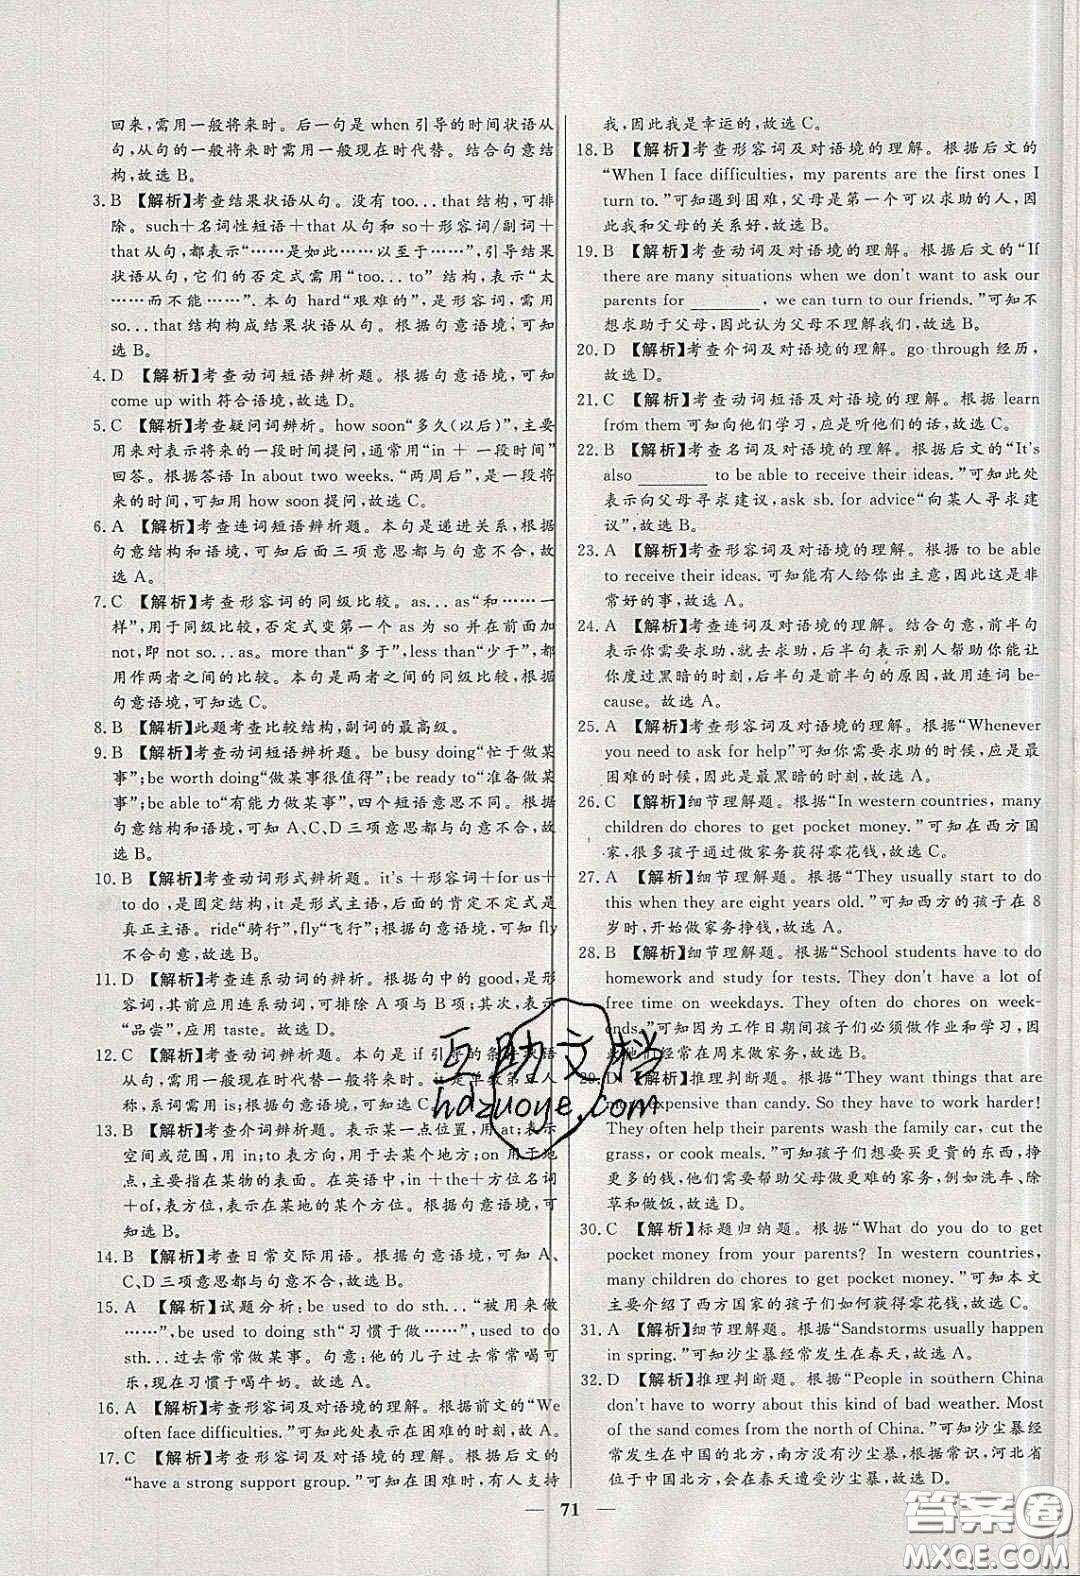 回来,需用一般将来时。后一句是 when 引导的时间状语从
句,从句的一般将来时需用一般现在时代替。结合句意结
构,故选 B。
3. B 【解析】考查结果状语从句。没有 too...that 结构,可排
除。such＋名词性短语＋that 从句和 so＋形容词/副词＋
that 从句,都表示“……是如此……以至于……”,引导结果
状语从句,它们的否定式需用“too...to”结构,表示“太
……而不能……”. 本句 hard“艰难的”,是形容词,需用
so...that 结构构成结果状语从句。根据句意语境,可知
选 B。
4. D 【解析】考查动词短语辨析题。根据句意语境,可知
come up with 符合语境,故选 D。
5. C 【解析】考查疑问词辨析。how soon“多久(以后)”,主要
用来对表示将来的一段时间提问,通常用“in ＋ 一段时间”
回答。根据答语 In about two weeks. “两周后”,是一段将
来的时间,可知用 how soon 提问,故选 C。
6. A 【解析】考查连词短语辨析题。本句是递进关系,根据
句意结构和语境,可知后面三项意思都与句意不合,故
选 A。
7. C 【解析】考查形容词的同级比较。as...as“和……一
样”,用于同级比较,否定式变第一个 as 为 so 并在前面加
not,即 not so...as。more than“多于”,less than“少于”,都
用作两者之间的比较。本句是两者之间的同级比较。根据
句意语境,可知选 C。
8. B 【解析】此题考查比较结构,副词的最高级。
9. B 【解析】考查动词短语辨析题。be busy doing“忙于做某
事”;be worth doing“做某事很值得”;be ready to“准备做某
事”;be able to“有能力做某事”,四个短语意思不同。根据
句意结构和语境,可知 A、C、D 三项意思都与句意不合,故
选 B。
10. B 【解析】考查动词形式辨析题。it's ＋形容词＋for us＋
to do ,是固定结构,it 是形式主语,后面的肯定不定式是
真正主语。ride“骑行”,fly“飞行”;根据句意语境,可知 fly
不合句意,故选 B。
11. D 【解析】考查连系动词的辨析。根据句中的 good,是形
容词,其前应用连系动词,可排除 A 项与 B 项;其次,表示
“品尝”,应用 taste。故选 D。
12. C 【解析】考查动词辨析。本句是 if 引导的条件状语
从句,用一般现在时代替一般将来时。it 是单数第三人
称,系词需用 is;根据句意语境,可知选 C。
13. B 【解析】考查介词辨析。表示某一点位置,用 at;表示
空间或范围,用 in;to 表方向,表示到某个地方;on 用于地
点,主要指在某物的表面。在英语中,in ＋the＋方位名词
＋of,表方位,表示在某地的某个方位。根据句意语境,可
知选 B。
14. B 【解析】考查日常交际用语。根据句意语境,可知 A、
C、D 三项意思都与句意不合,故选 B。
15. A 【解析】试题分析:be used to do sth...“被用来做
……”,be used to doing sth“习惯于做……”,used to do
sth...过去常常做某事。句意:他的儿子过去常常喝可
乐,现在习惯于喝牛奶。故选 A。
16. A 【解析】考查形容词及对语境的理解。根据前文的“We
often face difficulties.”可知此处表示在困难时,故选 A。
17. C 【解析】考查形容词及对语境的理解。根据后文的
“have a strong support group.”可知在困难时,有人支持
我,因此我是幸运的,故选 C。
18. B 【解析】考查形容词及对语境的理解。根据后文的
“When I face difficulties, my parents are the first ones I
turn to.”可知遇到困难,父母是第一个可以求助的人,因
此我和父母的关系好,故选 B。
19. B 【解析】考查动词及对语境的理解。根据后文的“If
there are many situations when we don't want to ask our
parents for ______, we can turn to our friends.”可知不
想求助于父母,因此认为父母不理解我们,故选 B。
20. D 【解析】考查介词及对语境的理解。go through 经历,
故选 D。
21. C 【解析】考查动词短语及对语境的理解。根据 learn
from them 可知向他们学习,应是听他们的话,故选 C。
22. B 【解析】考查名词及对语境的理解。根据后文的“It's
also ______ to be able to receive their ideas.”可知此处
表示向父母寻求建议,ask sb. for advice“向某人寻求建
议”,故选 B。
23. A 【解析】考查形容词及对语境的理解。根据 to be able
to receive their ideas. 可知能有人给你出主意,因此这是非
常好的事,故选 A。
24. A 【解析】考查连词及对语境的理解。结合句意,前半句
表示你需要求助,后半句表示别人帮助你能让
你度过黑暗的时刻,后半句是前半句的原因,故用连词 be-
cause。故选 A。
25. A 【解析】考查形容词及对语境的理解。根据“Whenever
you need to ask for help”可知你需要求助的时候,应是最
困难的时候,因此是最黑暗的时刻,故选 A。
26. C 【解析】细节理解题。根据“In western countries, many
children do chores to get pocket money.”可知在西方国
家,很多孩子通过做家务获得零花钱,故选 C。
27. A 【解析】细节理解题。根据“They usually start to do
this when they are eight years old.”可知西方的孩子在 8
岁时,开始做家务挣钱,故选 A。
28. B 【解析】细节理解题。根据“School students have to do
homework and study for tests. They don't have a lot of
free time on weekdays. They often do chores on week-
ends.”可知因为工作日期间孩子们必须做作业和学习,因
此他们经常在周末做家务,故选 B。
29. D 【解析】推理判断题。根据“They want things that are
more expensive than candy. So they have to work harder!
They often help their parents wash the family car, cut the
grass, or cook meals.”可知孩子们想要买更贵的东西,挣
更多的钱,他们需要帮助父母做更难的家务,例如洗车、除
草和做饭,故选 D。
30. C 【解析】标题归纳题。根据“What do you do to get
pocket money from your parents? In western countries,
many children do chores to get pocket money.”可知本文
主要介绍了西方国家的孩子们如何获得零花钱。故选 C。
31. A 【解析】细节理解题。根据“Sandstorms usually happen
in spring.”可知沙尘暴经常发生在春天,故选 A。
32. D 【解析】推理判断题。根据“People in southern China
don't have to worry about this kind of bad weather. Most
of the sand comes from the north of China.”可知沙尘暴经
常发生在中国的北方,南方没有沙尘暴,根据常识,河北省
位于中国北方,会在春天遭受沙尘暴,故选 D。
互助文档
hdzuoye.com
— 71 —
答案圈
MXQE.COM